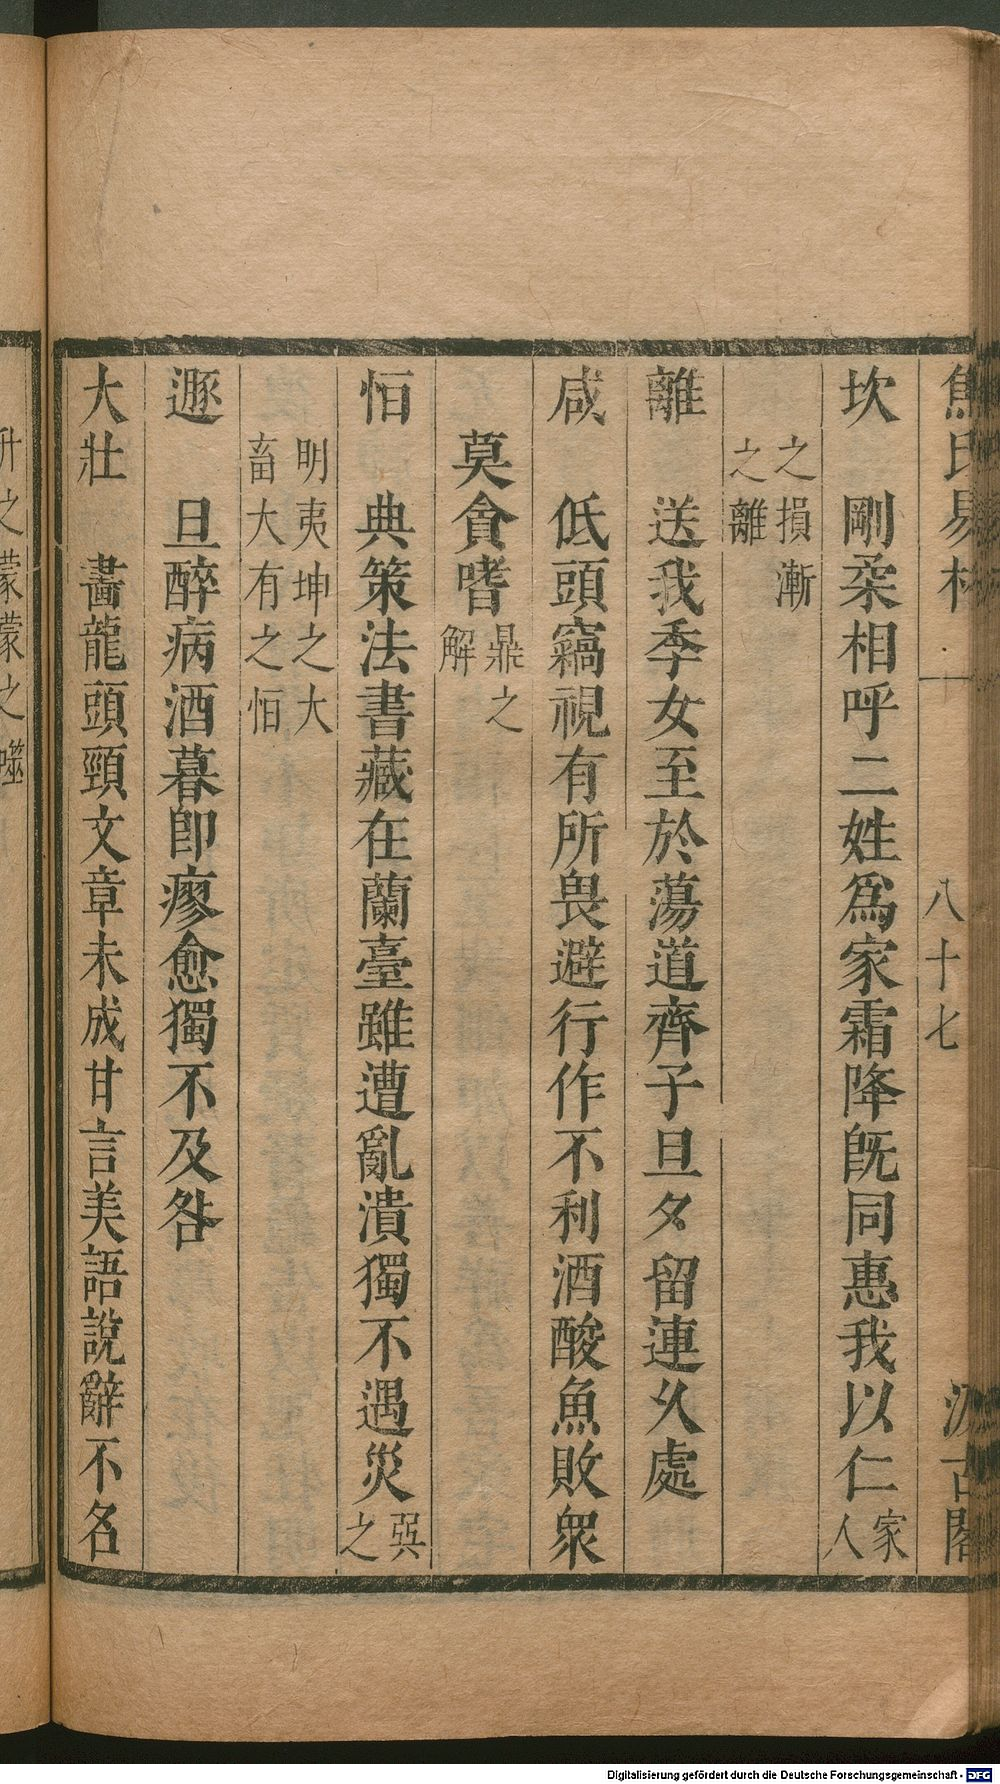 焦氏易林 一 八十七 汲古閣
坎 剛柔相呼二姓爲家霜降旣同惠我以仁家人
之損漸之離
離 送我季女至於蕩道齊子旦夕留連久處
咸 低頭竊視有所畏避行作不利酒酸魚敗衆
莫貪嗜鼎之解
恒 典策法書藏在蘭臺雖遭亂潰獨不遇災巽之
明夷坤之大畜大有之恒
遯 旦醉病酒暮卽瘳愈獨不及咎
大壯 畵龍頭頸文章未成甘言美語說辭不名
升之蒙蒙之噬
Digitalisierung gefördert durch die Deutsche Forschungsgemeinschaft - DFG